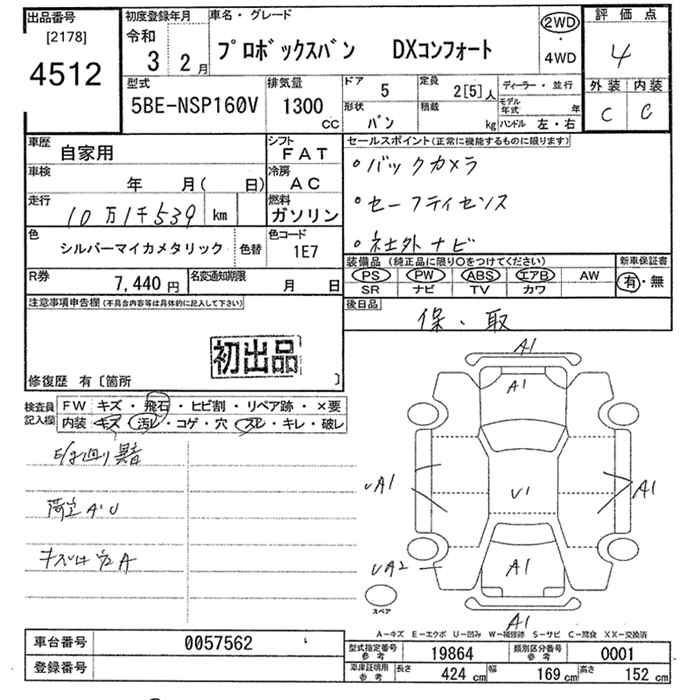 出品番号
[2178]
4512
初度登録年月
令和
3 2月
車名・グレード
プロボックスバン DXコンフォート
2WD
・
4WD
評価点
4
外装 内装
C C
型式
5BE-NSP160V
排気量
1300 CC
ドア
5
形状
バン
定員
2[5]人
積載
kg
ディーラー・並行
モデル年式 年
ハンドル 左・右
車歴
自家用
シフト
FAT
車検
年 月( 日)
冷房
AC
走行
10万1千539 km
燃料
ガソリン
色
シルバーマイカメタリック
色替
色コード
1E7
R券
7,440円
名変通知期限
月 日
セールスポイント(正常に機能するものに限ります)
・バックカメラ
・セーフティセンス
・社外ナビ
装備品(純正品に限り○をつけてください)
PS PW ABS エアB AW
SR ナビ TV カワ
新車保証書
有・無
後日品
保・取
注意事項申告欄(不具合内容等は具体的に記入して下さい)
初出品
修復歴 有〔箇所 〕
検査員記入欄
FW キズ・飛石・ヒビ割・リペア跡・×要
内装 キズ・汚レ・コゲ・穴・スレ・キレ・破レ
荷室A・U
A1
A1
UA1
U1
A1
UA2
A1
A1
スペア
A-キズ E-エクボ U-凹み W-補修跡 S-サビ C-腐食 XX-交換済
車台番号
0057562
登録番号
型式指定番号 参考
19864
類別区分番号 参考
0001
車庫証明用 参考
長さ 424 cm 幅 169 cm 高さ 152 cm